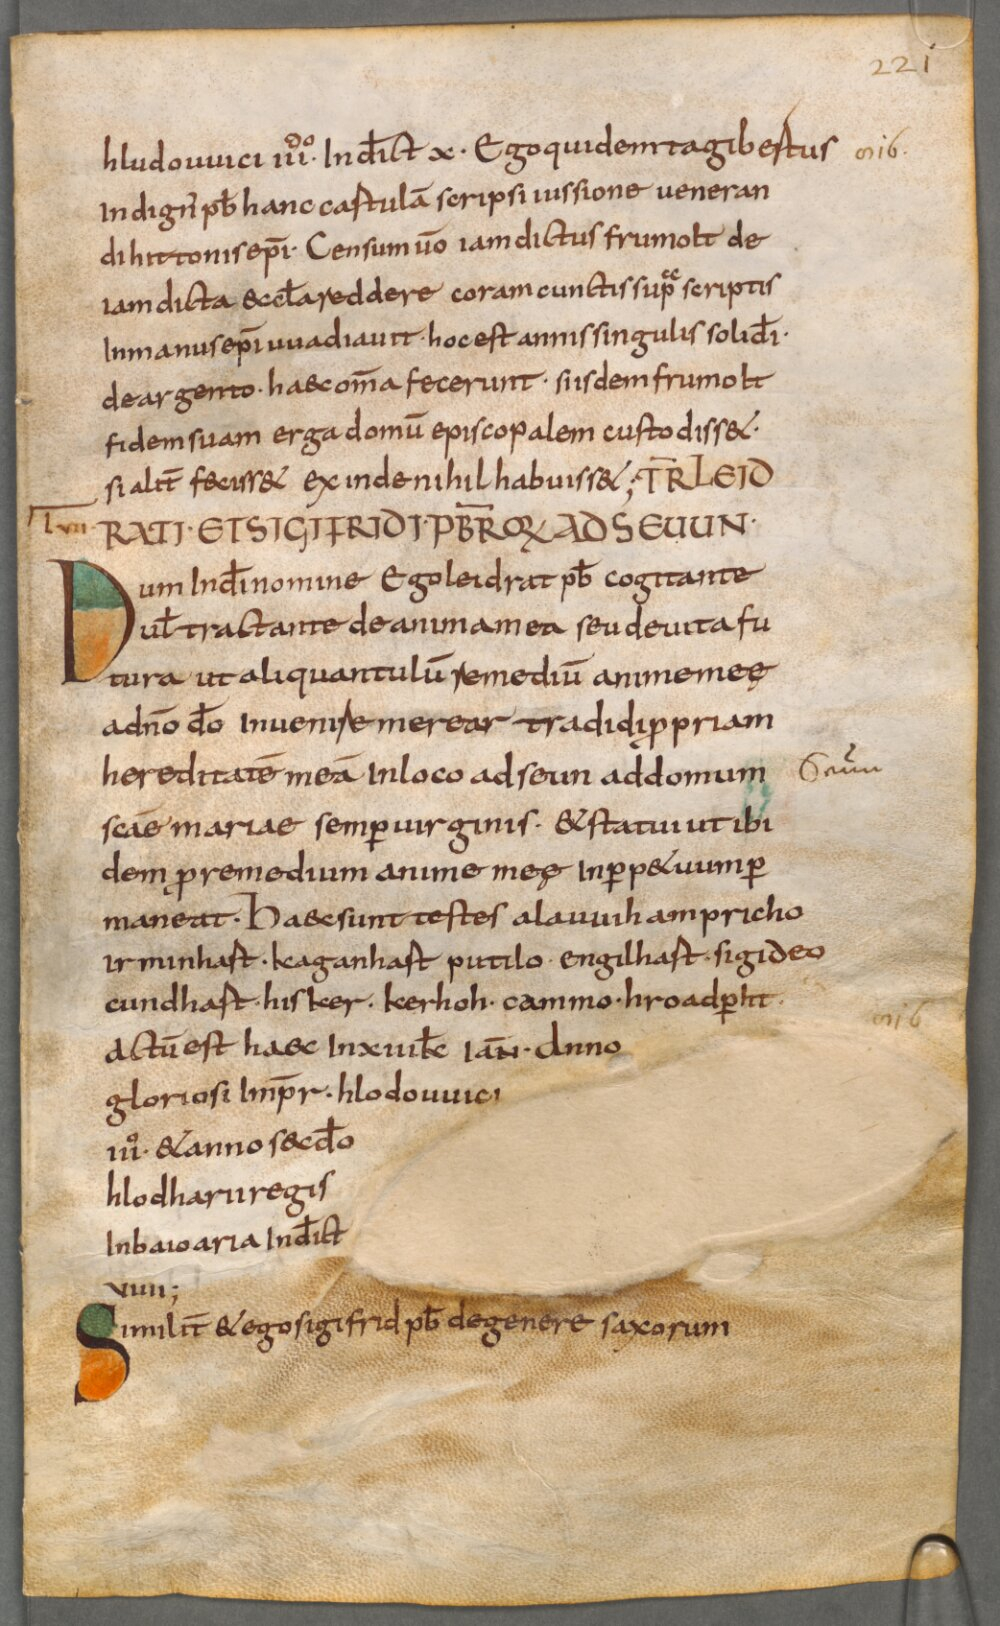 221
hludouuici iiii᷒do. Ind̄ict x. Ego quidem tagibestus
Indign̄ pb̄ hanc castulā scripsi iussione ueneran
di hittonis ep̄i. Censum ūo iam dictus frumolt de
iam dicta &ccl̄a reddere coram cunctis sup̄ scriptis
In manus ep̄i uuadiauit. hoc est annis singulis solid̄ i.
de argento. haec om̄a fecerunt. si isdem frumolt
fidem suam erga domū episcopalem custodiss&.
si alit̄ feciss& exinde nihil habuiss&; TR̄ LEID
RATI. ET SIGIFRIDI. PB̄ROꝝ AD SEUUN.
Dum In d̄i nomine Ego leidrat pb̄ cogitante
ul̄ tractante de anima mea seu de uita fu
tura ut aliquantulū remediū anime meę
ad n̄o d̄o Inuenire merear tradidi ꝓpriam
hereditatē meā In loco ad seun ad domum
sc̄ae mariae semꝑ uirginis. & statui ut ibi
dem ꝓ remedium anime meę In ꝑp&uum ꝑ
maneat. Haec sunt testes alauuih ampricho
irminhast. kaganhast putilo. engilhast. sigideo
cundhast. hisker. kerhoh. cammo. hroadꝑht.
actū est haec In xiiii kl̄c ian̄. Anno
gloriosi Imp̄r. hlodouuici
iiio. & anno secd̄o
hlodharii regis
In baioaria Ind̄ict
viiii;
Similit̄ & ego sigifrid pb̄ de genere saxorum